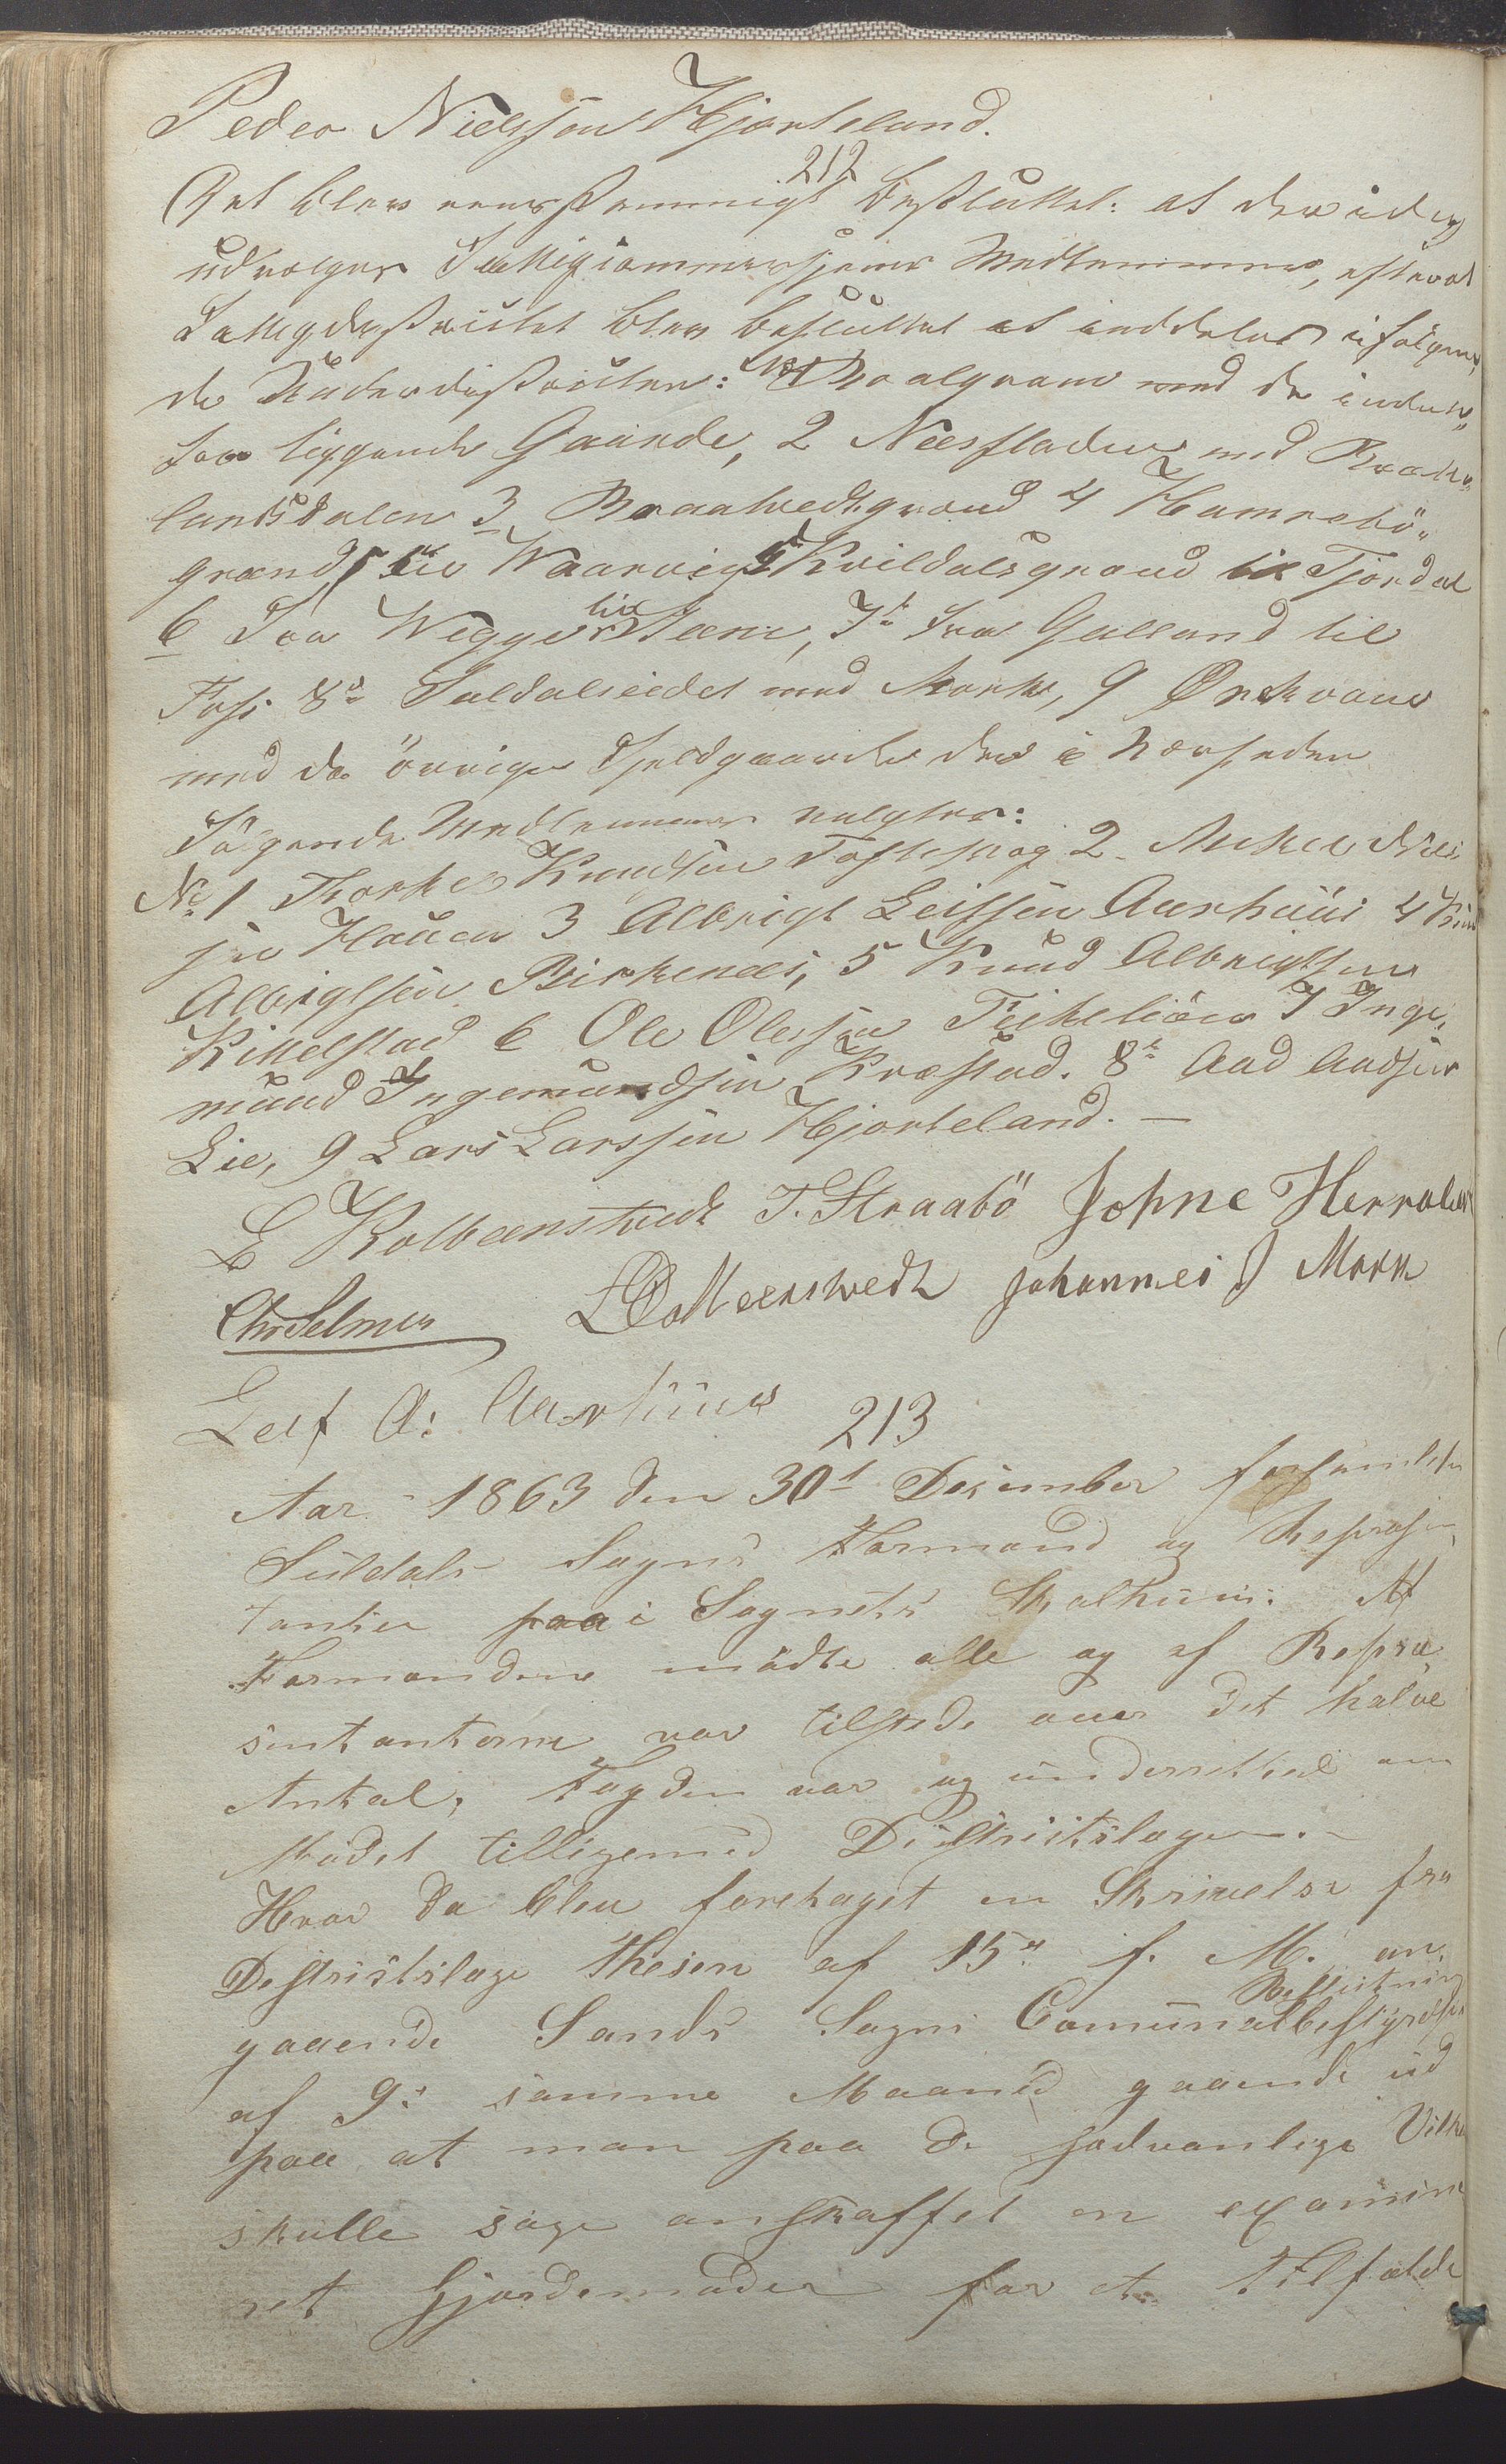 Peder Nielssøn Hjorteland.
212
Det blev eenstemmigt besluttet: at der i dag
udvælges Fattigcommissjonens Medlemmer, efterat
Fattigdistriktet blev besluttet at inddeles i følgen„
de Underdistrikter: No 1 med de inden„
for liggende Gaarde, 2 Næsfladen med Bratt„
landsdalen 3 Braatvedtgrænd 4 Hamrebö„
grænd, til Waarvig 5 Kvildalsgrænd til Tjordal
6 Fra Wegge til Steene, 7de fra Galland til
Foss 8de Suldalseidet med Mork, 9 Ørekvam
med de övrige Fjeldgaarde der i Nærheden
Fölgende Medlemmer valgtes:
No 1 Thorkel Knudsen Tofteskog 2 Mikel
sen Hauen 3 Albrigt Leifsen Aarhuus 4
Albrigtsen Birkenæs, 5 Knud Albrigtsen
Kittelstad 6 Ole Olessen 7 Inge„
mund Ingemundsen Kvæstad. 8de Aad Aadsen
Lie, 9 Lars Larssen Hjorteland. —
L Kolbeenstvedt T. Straabö Johne Herrolae
Chr Selmer Johannes J Mork
Leif A: Aarhuus
213
Aar 1863 den 30t Desember forsamlete
Suldals Sogns Formænd og Repræsen
tanter paa i Sognets Skolhuus: Af
Formændene mödte alle og af Repræ
sentanterne var tilstede over det halve
Antal, Fogden var og underrettet om
Mödet tilligemed Distriktslægen. —
Hvor da blev foretaget en Skrivelse fra
Destriktslæge Thesen af 15de f. M. an„
gaaende Sands Sogns Comunalbestyrelses
Beslutning
af 9de samme Maaned gaaende ud
paa at man paa de sædvanlige Vilk
skulle søge anskaffet en examine
ret Gjordemoder for et Tilfælde